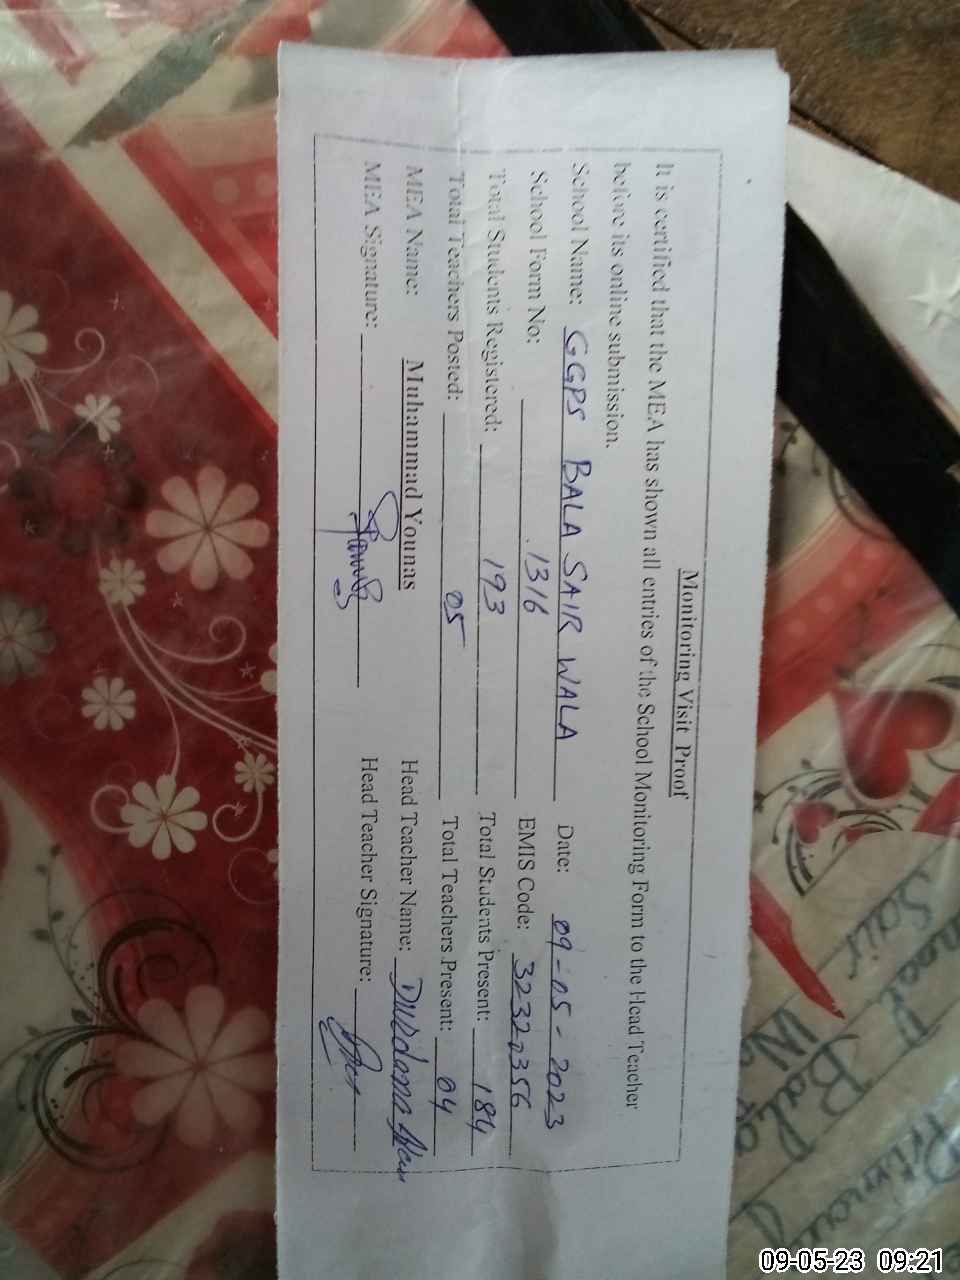 Monitoring Visit Proof
It is certified that the MEA has shown all entries of the School Monitoring Form to the Head Teacher
before its online submission.
School Name: GGPS BALA SAIR WALA Date: 09-05-2023
School Form No: 1316 EMIS Code: 32320356
Total Students Registered: 193 Total Students Present: 184
Total Teachers Posted: 05 Total Teachers Present: 04
MEA Name: Muhammad Younas Head Teacher Name: Durdana
MEA Signature: Head Teacher Signature:
Sair
09-05-23 09:21